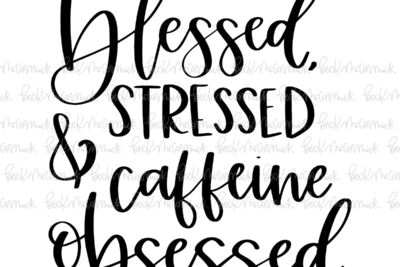 Blessed,
STRESSED
& caffeine
obsessed.